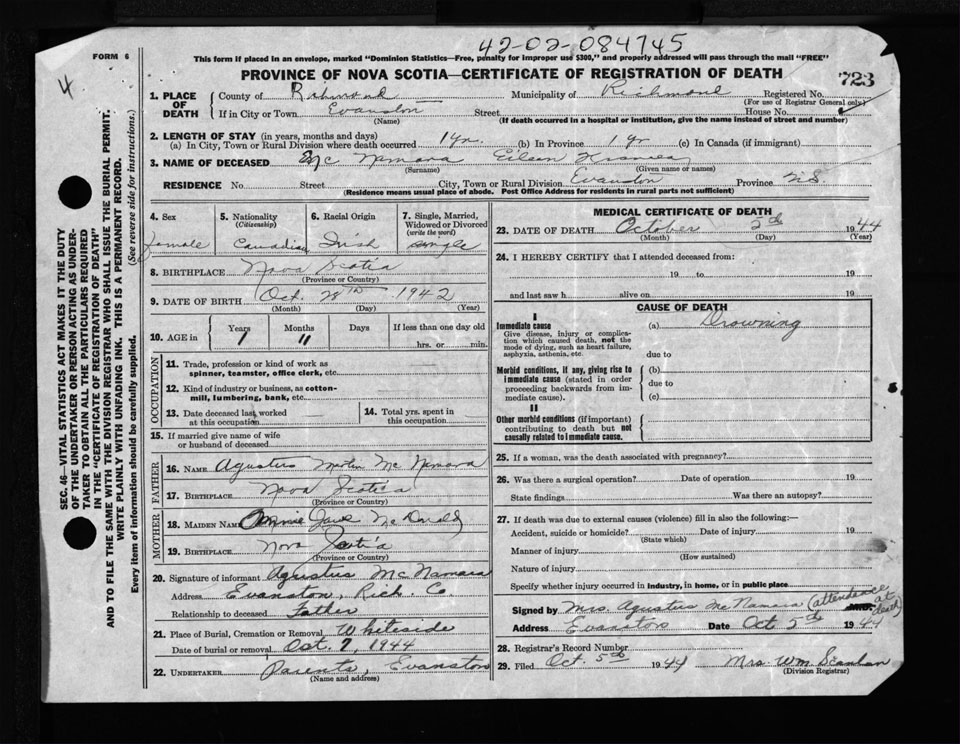 42-02-084745
FORM 6
4
This form if placed in an envelope, marked "Dominion Statistics—Free, penalty for improper use $300," and properly addressed will pass through the mail "FREE"
PROVINCE OF NOVA SCOTIA—CERTIFICATE OF REGISTRATION OF DEATH
723
SEC. 46—VITAL STATISTICS ACT MAKES IT THE DUTY
OF THE UNDERTAKER OR PERSON ACTING AS UNDER-
TAKER TO OBTAIN ALL THE PARTICULARS REQUIRED
IN THE "CERTIFICATE OF REGISTRATION OF DEATH"
AND TO FILE THE SAME WITH THE DIVISION REGISTRAR WHO SHALL ISSUE THE BURIAL PERMIT.
WRITE PLAINLY WITH UNFADING INK. THIS IS A PERMANENT RECORD.
Every item of information should be carefully supplied. (See reverse side for instructions.)
1. PLACE OF DEATH
County of Richmond Municipality of Richmond Registered No.
(For use of Registrar General only)
If in City or Town Evanston Street House No.
(Name) (If death occurred in a hospital or institution, give the name instead of street and number)
2. LENGTH OF STAY (in years, months and days)
(a) In City, Town or Rural Division where death occurred 1 yr. (b) In Province 1 yr (c) In Canada (if immigrant)
3. NAME OF DECEASED Mc Namara Eileen
(Surname) (Given name or names)
RESIDENCE No. Street City, Town or Rural Division Evanston Province N.S.
(Residence means usual place of abode. Post Office Address for residents in rural parts not sufficient)
4. Sex
female
5. Nationality
(Citizenship)
Canadian
6. Racial Origin
Irish
7. Single, Married,
Widowed or Divorced
(write the word)
single
8. BIRTHPLACE Nova Scotia
(Province or Country)
9. DATE OF BIRTH Oct. 28th 1942
(Month) (Day) (Year)
10. AGE in
Years Months Days If less than one day old
1 11 hrs. or min.
OCCUPATION
11. Trade, profession or kind of work as
spinner, teamster, office clerk, etc.
12. Kind of industry or business, as cotton-
mill, lumbering, bank, etc.
13. Date deceased last worked
at this occupation
14. Total yrs. spent in
this occupation
15. If married give name of wife
or husband of deceased
FATHER
16. NAME Agustus Martin Mc Namara
17. BIRTHPLACE Nova Scotia
(Province or Country)
MOTHER
18. MAIDEN NAME Annie Jane McDonald
19. BIRTHPLACE Nova Scotia
(Province or Country)
20. Signature of informant Agustus McNamara
Address Evanston, Rich. Co.
Relationship to deceased Father
21. Place of Burial, Cremation or Removal Whiteside
Date of burial or removal Oct. 7, 1944
22. UNDERTAKER Parents, Evanston
(Name and address)
MEDICAL CERTIFICATE OF DEATH
23. DATE OF DEATH October 5th 1944
(Month) (Day) (Year)
24. I HEREBY CERTIFY that I attended deceased from:
19 to 19
and last saw h alive on 19
CAUSE OF DEATH
I
Immediate cause (a) Drowning
Give disease, injury or complica-
tion which caused death, not the
mode of dying, such as heart failure,
asphyxia, asthenia, etc. due to
Morbid conditions, if any, giving rise to (b)
immediate cause (stated in order due to
proceeding backwards from im-
mediate cause). (c)
II
Other morbid conditions (if important)
contributing to death but not
causally related to immediate cause.
25. If a woman, was the death associated with pregnancy?
26. Was there a surgical operation? Date of operation 19
State findings Was there an autopsy?
27. If death was due to external causes (violence) fill in also the following:—
Accident, suicide or homicide? Date of injury 19
(State which)
Manner of injury
(How sustained)
Nature of injury
Specify whether injury occurred in industry, in home, or in public place
Signed by Mrs. Agustus McNamara (attendance at death)
Address Evanston Date Oct 5th 1944
28. Registrar's Record Number
29. Filed Oct. 5th 1944 Mrs. Wm. Scanlan
(Division Registrar)